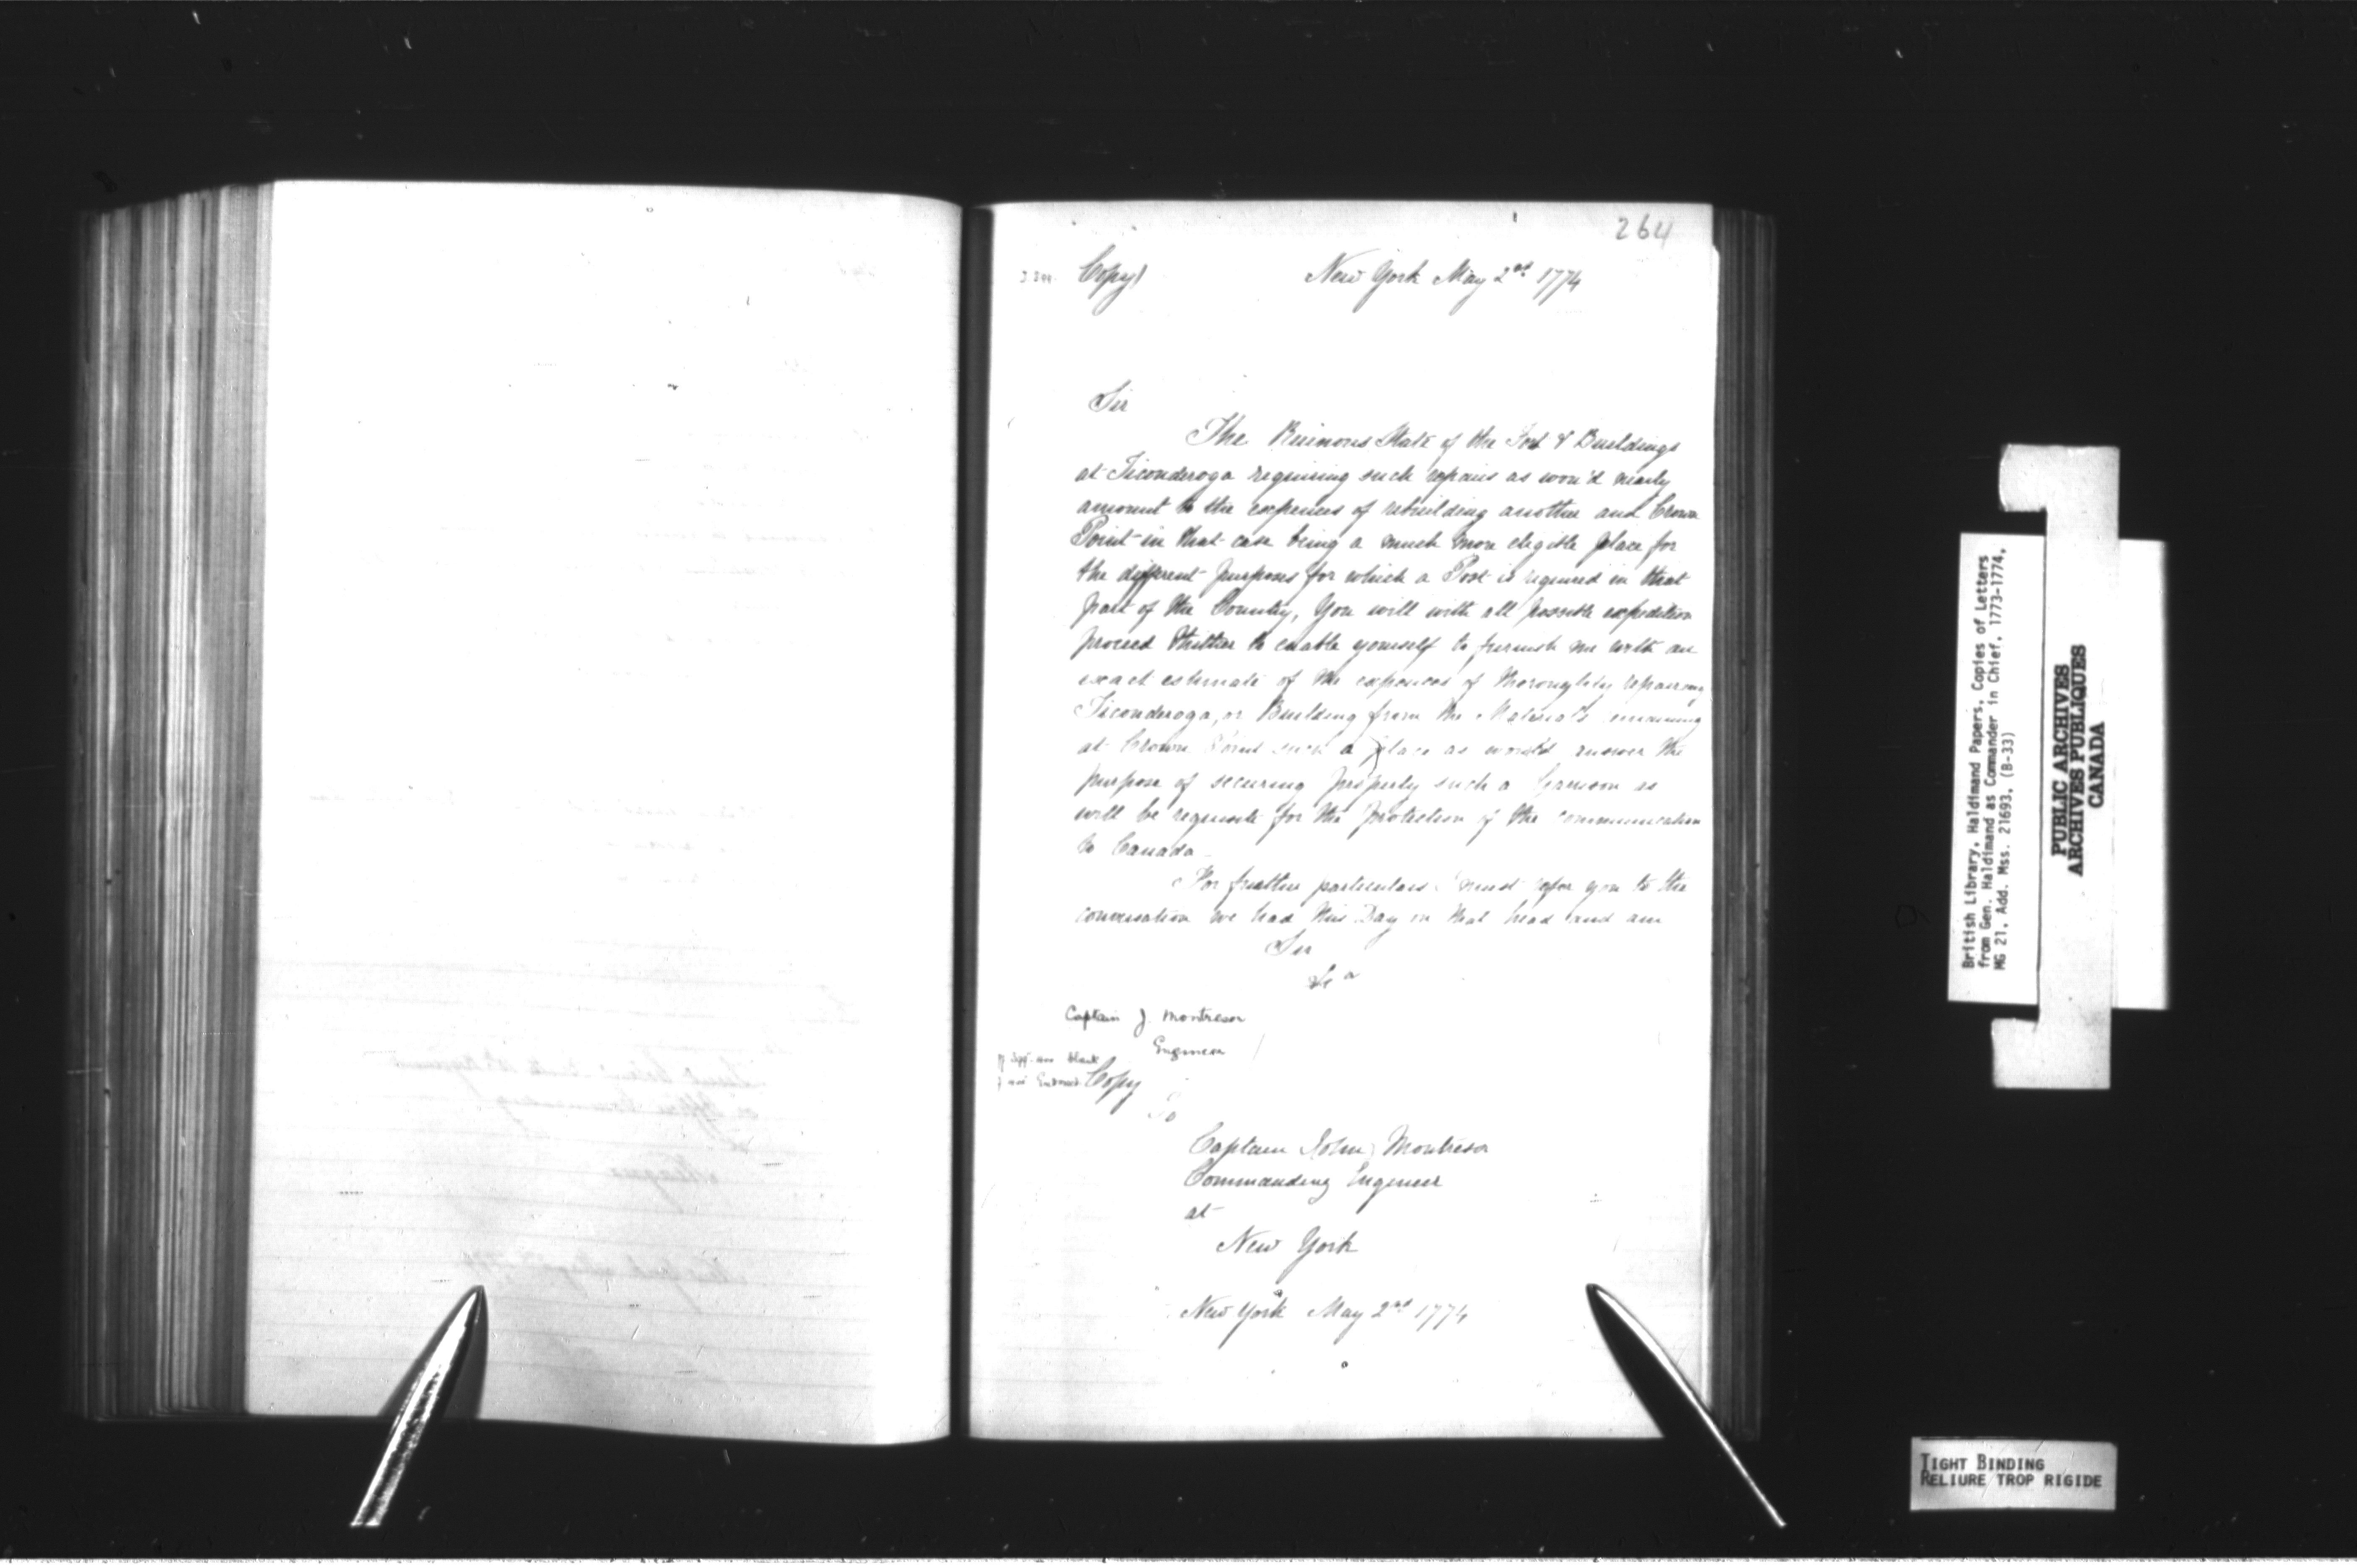 264
Copy) New York May 2nd 1774
Sir
The Ruinous State of the Fort & Buildings
at Ticonderoga requiring such repairs as wou'd nearly
amount to the expences of rebuilding another and Crown
Point in that case being a much more elegible place for
the different purposes for which a Post is required in that
part of the Country, You will with all possible expedition
proceed thither to enable yourself to furnish me with an
exact estimate of the expences of thoroughly repairing
Ticonderoga, or Building from the Materials remaining
at Crown Point such a place as would answer the
purpose of securing properly such a Garrison as
will be requisite for the protection of the communication
to Canada
For further particulars I must refer you to the
conversation we had this Day on that head and am
Sir
&ca
Captain J. Montresor
Engineer
Copy
To
Captain John Montresor
Commanding Engineer
at
New York
New York May 2nd 1774
British Library, Haldimand Papers, Copies of Letters
from Gen. Haldimand as Commander in Chief, 1773-1774,
MG 21, Add. Mss. 21693, (B-33)
PUBLIC ARCHIVES
ARCHIVES PUBLIQUES
CANADA
TIGHT BINDING
RELIURE TROP RIGIDE